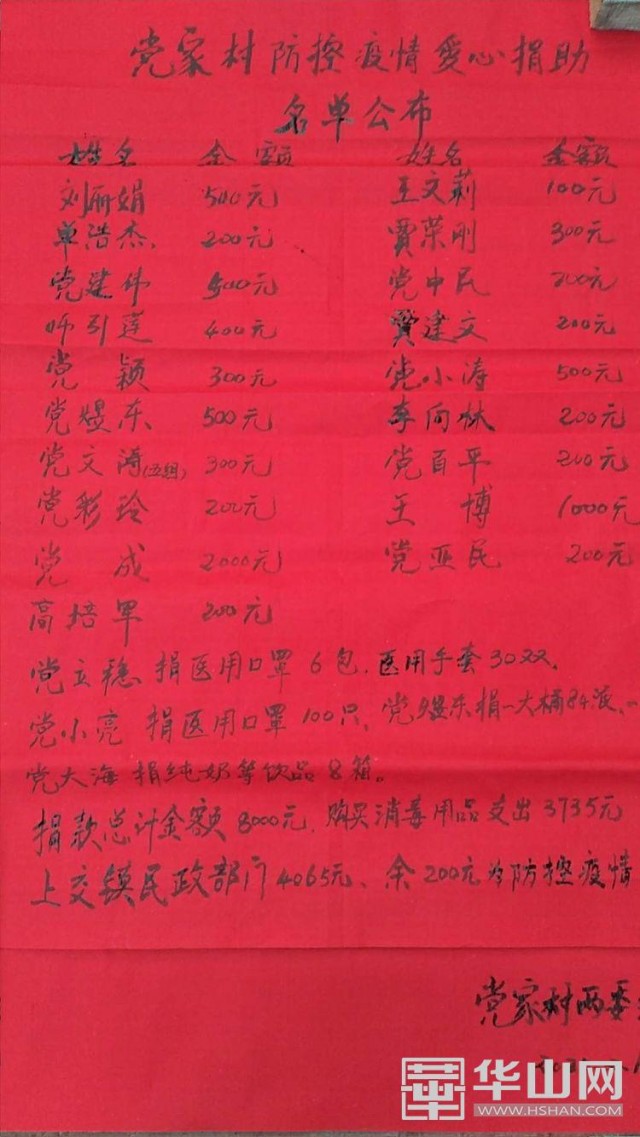 党家村防控疫情爱心捐助
名单公布
姓名 金额 姓名 金额
刘丽娟 500元 王文莉 100元
单浩杰 200元 贾荣刚 300元
党建伟 500元 党中民 200元
师引莲 400元 贾建文 200元
党颖 300元 党小涛 500元
党煜东 500元 李向林 200元
党文涛(五组) 300元 党百平 200元
党彩玲 200元 王博 1000元
党成 2000元 党亚民 200元
高培军 200元
党立稳捐医用口罩6包.医用手套30双、
党小亮捐医用口罩100只,党煜东捐一大桶84液、
党大海捐纯奶等饮品8箱。
捐款总计金额8000元.购买消毒用品支出3735元
上交镇民政部门4065元、余200元为防控疫情
党家村两委
華 华山网
WWW.HSHAN.COM